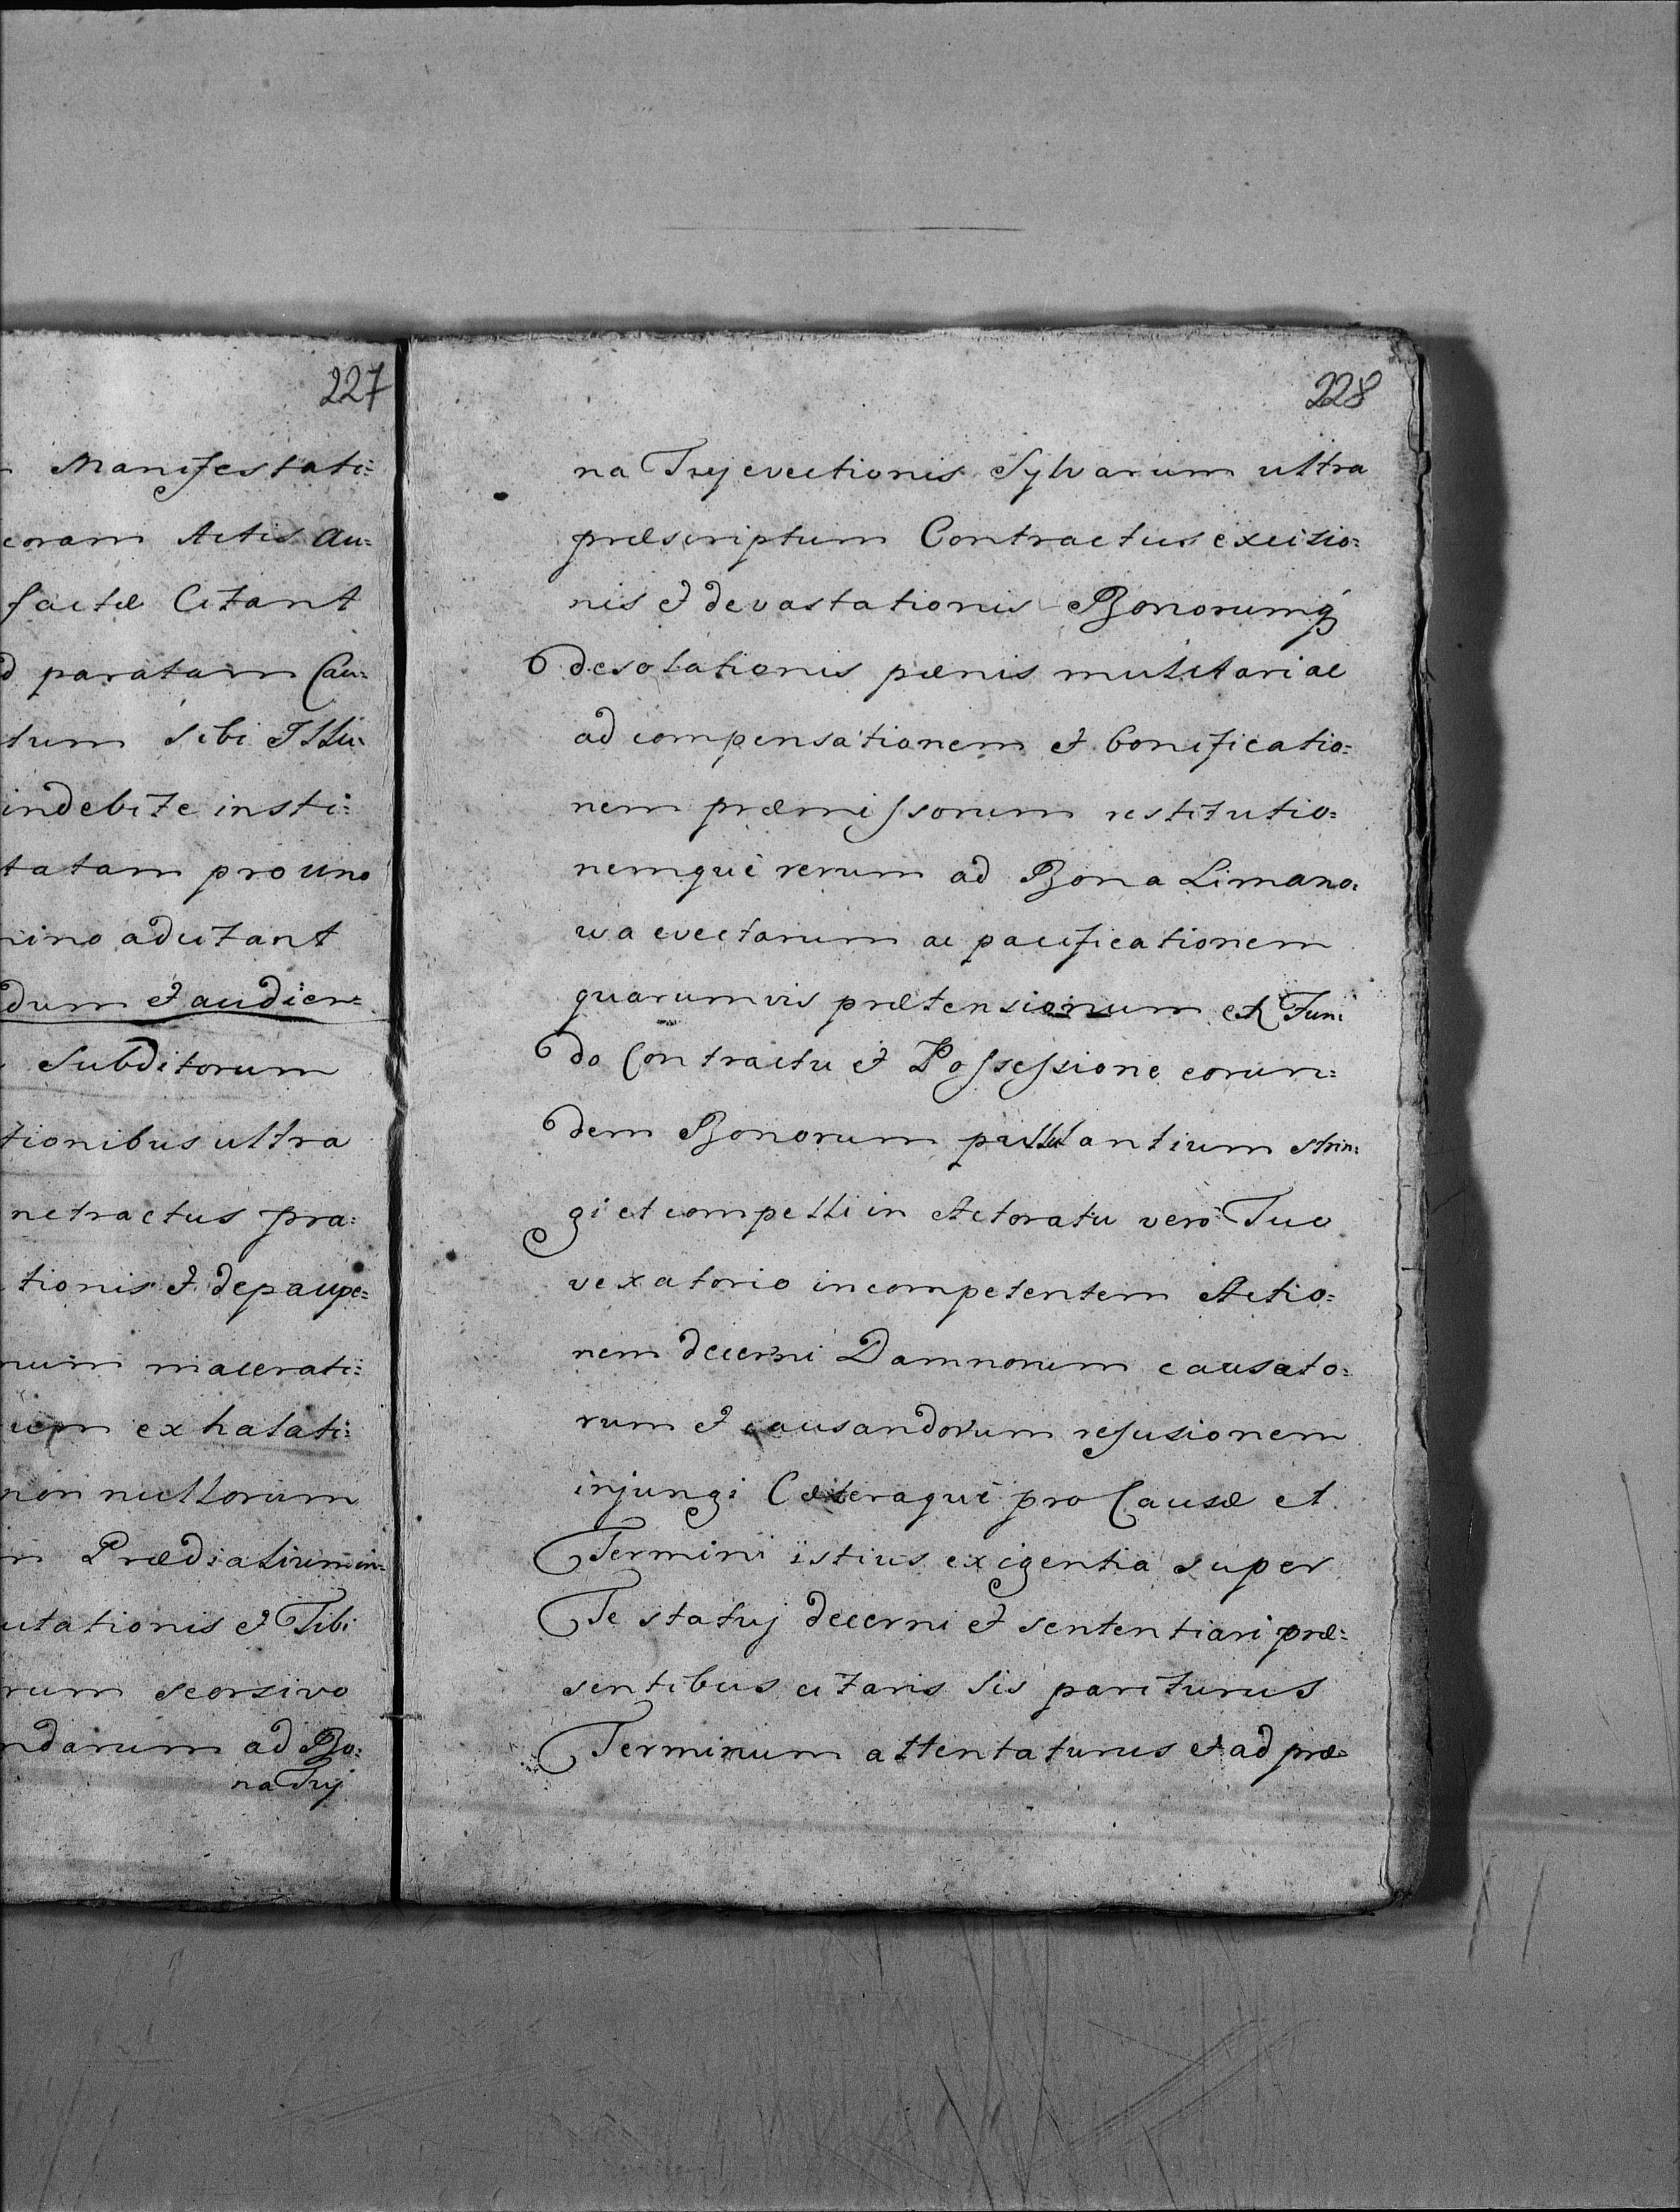 227
Manifestati=
coram Actis au=
factæ Citant
d paratam Cau=
tum sibi Illu=
indebite insti=
tatam pro uno
nino adcitant
dum et audien=
Subditorum
tionibus ultra
ntractus pra=
tionis et depaupe=
num macerati=
uem exhalati=
non nullorum
m Prædialium in=
utationis et Tibi
rum seorsivo
ndarum ad Bo=
na Tuj
228
na Tuj evectionis Sylvarum ultra
præscriptum Contractus excisio=
nis et devastationis Bonorumq
desolationis pænis mulctari ac
ad compensationem et bonificatio=
nem præmissorum restitutio=
nemque rerum ad Bona Limano=
wa evectarum ac pacificationem
quarumvis prætensionum ex Fun=
do Contractu et Possessione eorun=
dem Bonorum pullulantium strin=
gi et compelli in Actoratu vero Tuo
vexatorio incompetentem Actio=
nem decerni Damnorum causato=
rum et causandorum refusionem
injungi Cæteraque pro Causæ et
Termini istius exigentia super
Te statuj decerni et sententiari præ=
sentibus citaris Sis pariturus
Terminum attentaturus et ad præ=